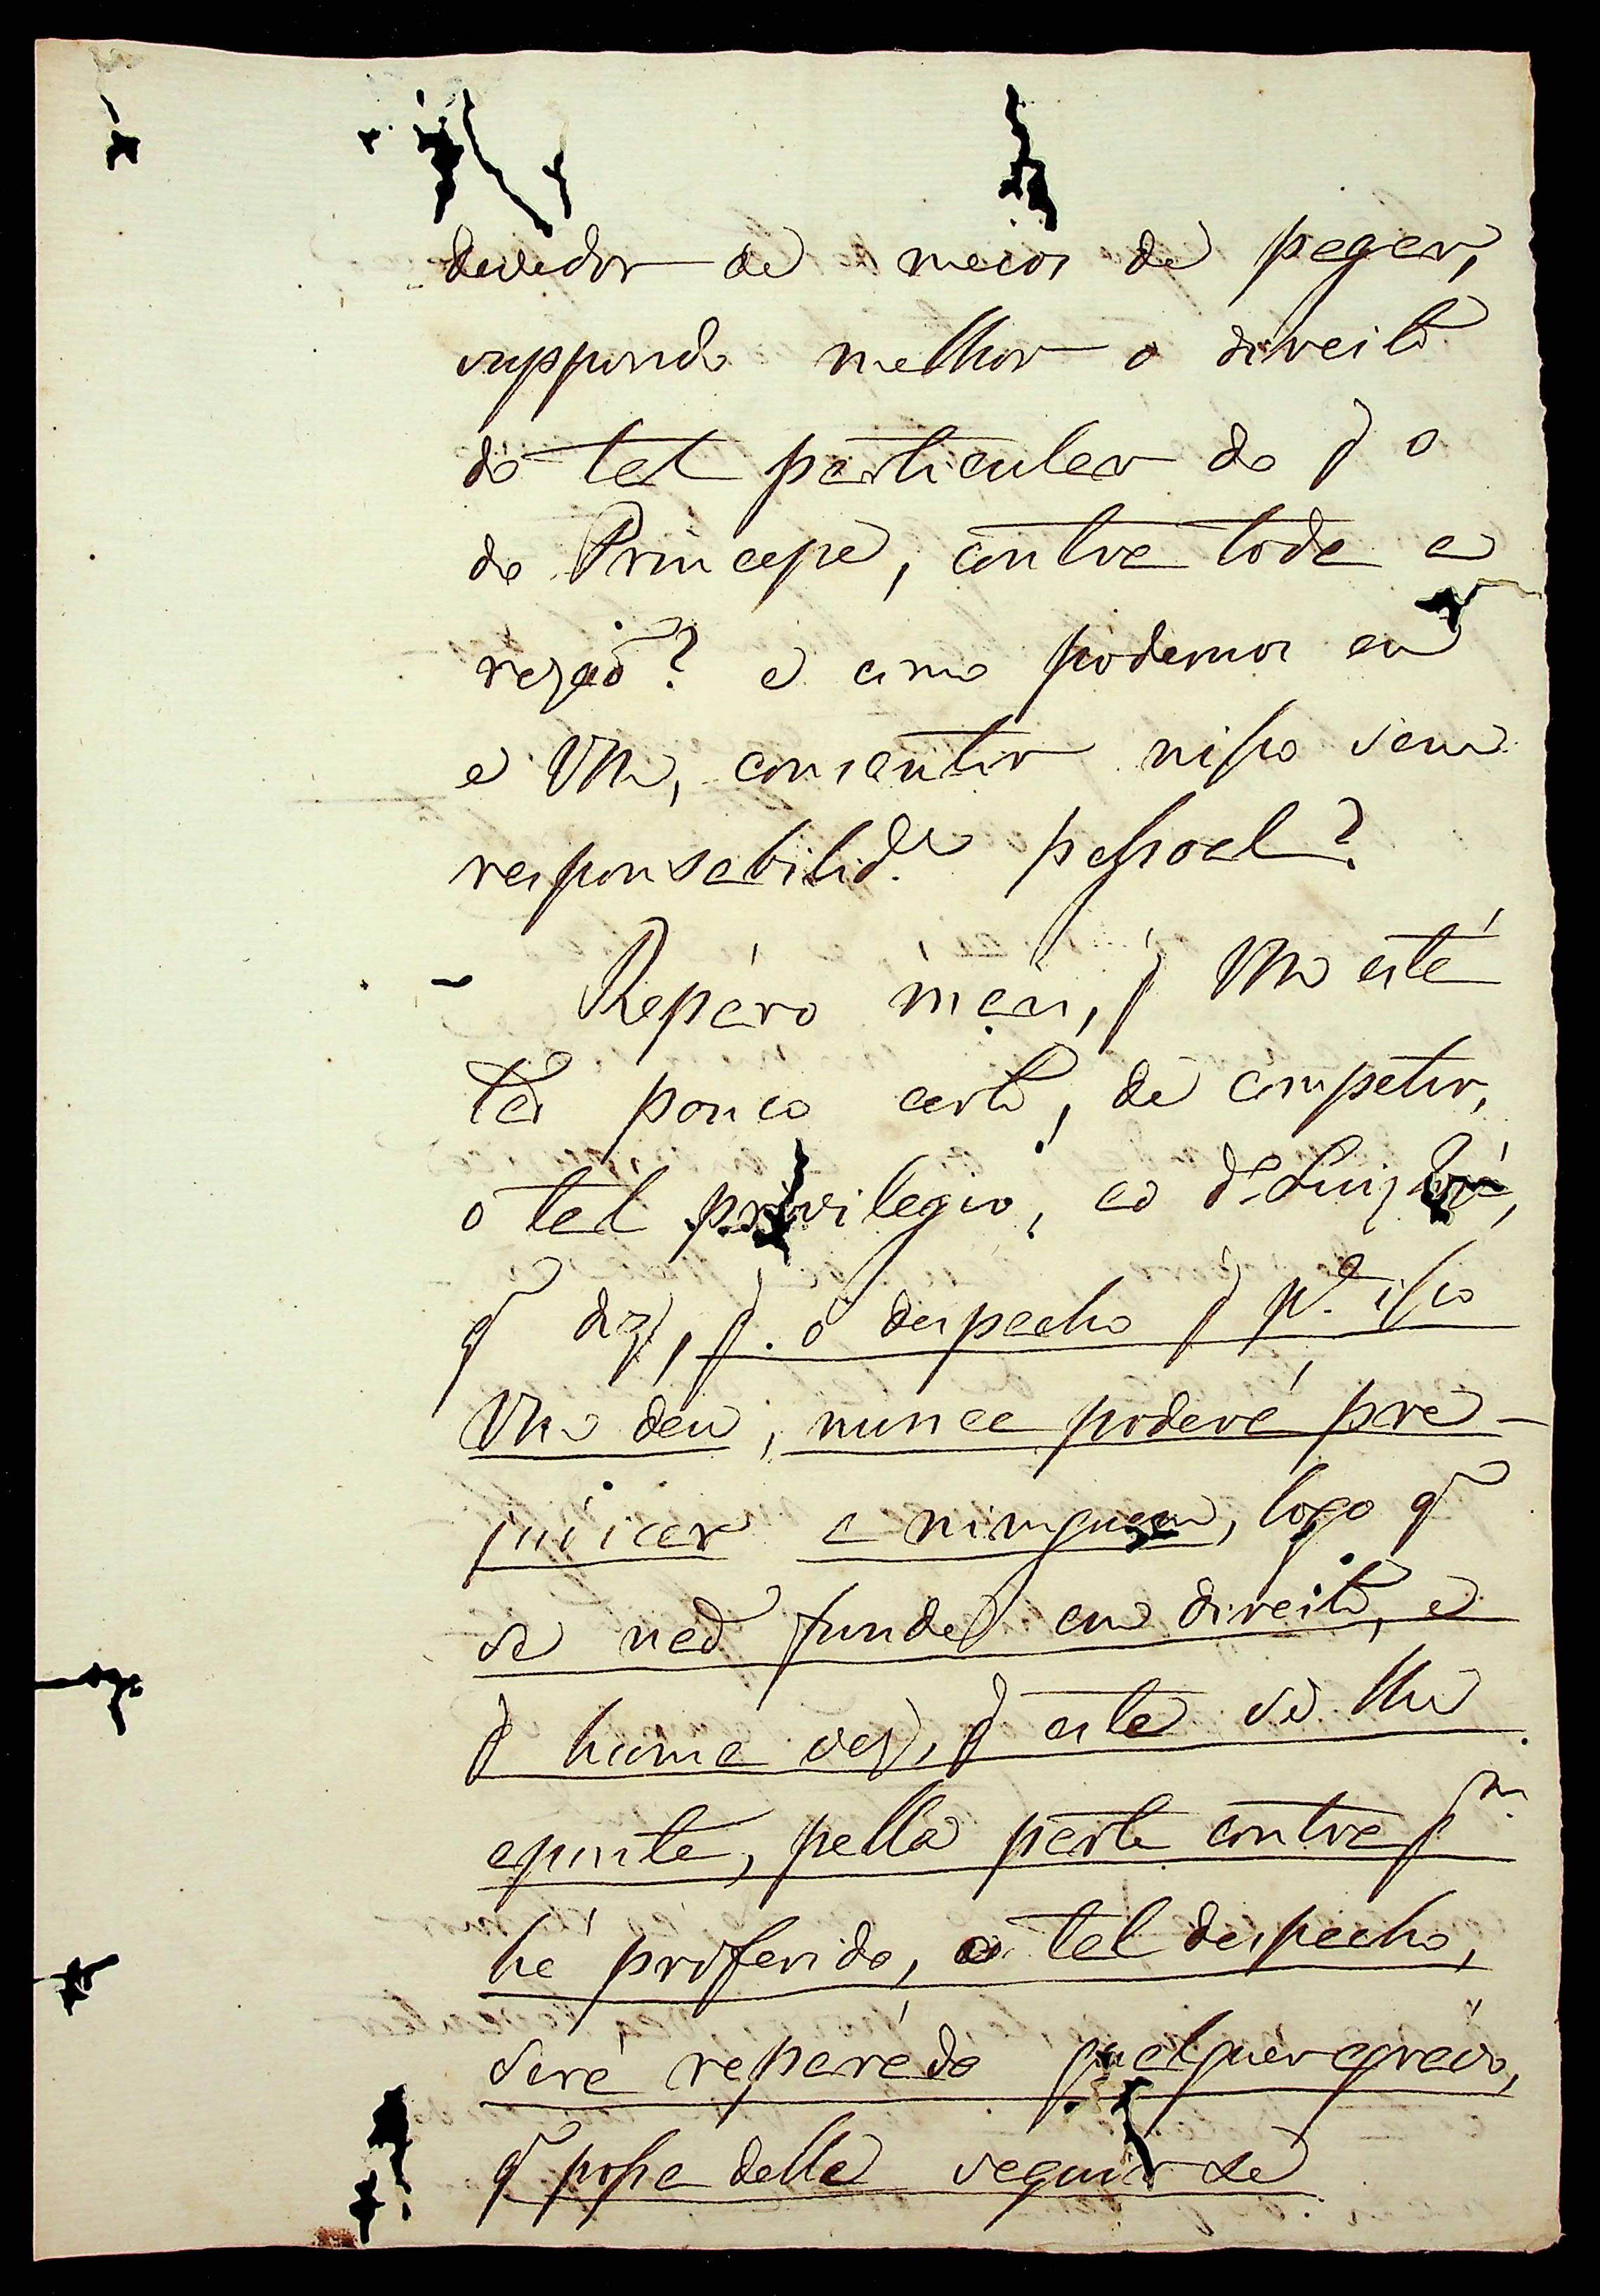 devedor de meios de pagar,
suppondo melhor o direito
do tal particular do q̃ o
do Princepe, contra toda a
rezaõ? e como podemos eu
e Vm, consentir nisso sem
responsabilid.e pessoal?
Repáro mais, q̃ Vm está
taõ pouco certo, de competir,
o tal privilegio, ao d.o Luiz José,
q̃ diz, q̃ o despacho q̃ p.a isso
Vm deu, nunca poderá pre-
juiicar a ninguem, logo q̃
se naõ funde em direito, e
q̃ huma vez, q̃ este se lhe
aponte, pella parte contra q.m
hé proferido, o tal despacho,
será reparádo qualquer agravo,
q̃ possa delle seguir se